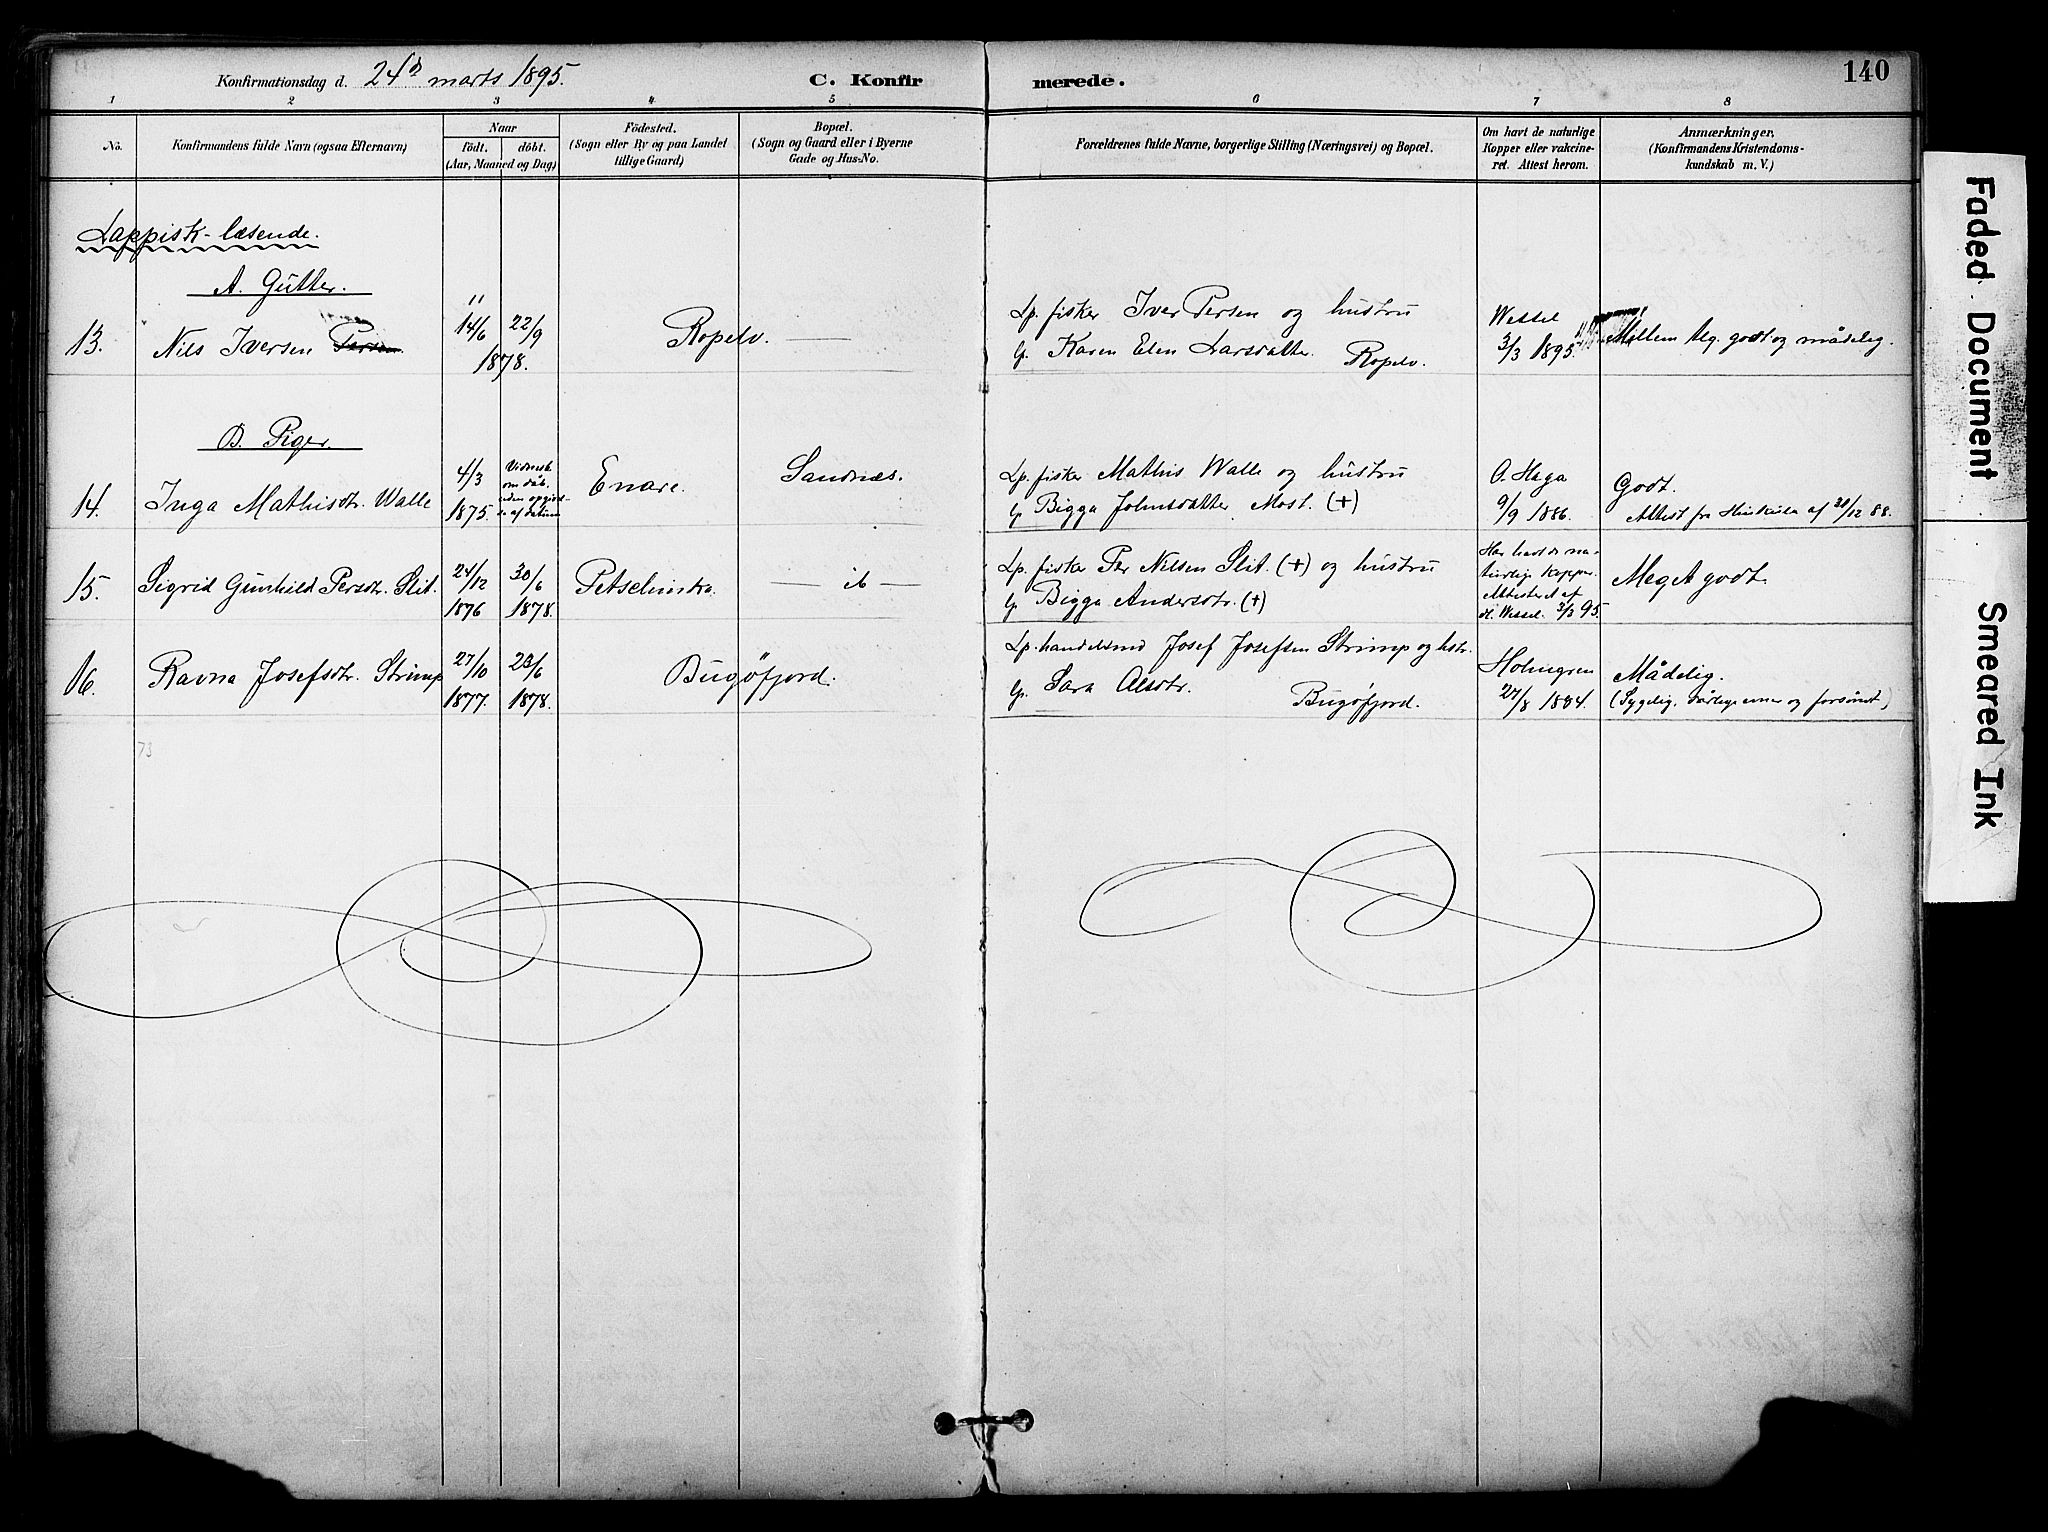 Konfirmationsdag d. 24d marts 1895.
C. Konfirmerede.
140
1 2 3 4 5 6 7 8
No.
Konfirmandens fulde Navn (ogsaa Efternavn)
Naar
födt. döbt.
(Aar, Maaned og Dag)
Födested.
(Sogn eller By og paa Landet
tillige Gaard)
Bopæl.
(Sogn og Gaard eller i Byerne
Gade og Hus-No.
Forældrenes fulde Navne, borgerlige Stilling (Næringsvei) og Bopæl.
Om havt de naturlige
Kopper eller vakcine-
ret. Attest herom.
Anmærkninger,
(Konfirmandens Kristendoms-
kundskab m. V.)
Lappisk-læsende.
A. Gutter.
13.
Nils Iversen Persen
14/6 22/9
1878.
Ropelv.
Lp. fisker Iver Persen og hustru
lp. Karen Elen Larsdatter. Ropelv.
Wessel
3/3 1895.
Mellem Mg. godt og mådelig.
B. Piger.
14.
Inga Mathisdtr. Walle
4/3
1875.
Vidnesb.
om dåb.
uden opgivel-
se af datum
Enare.
Sandnæs.
Lp. fisker Mathis Walle og hustru
lp. Bigga Johnsdatter Most. (+)
O. Haga
9/9 1886.
Godt.
Attest fra af 20/12 88.
15.
Sigrid Gunhild Persdtr. Slit.
24/12 30/6
1876 1878.
Petschinska.
— ib —
Lp. fisker Per Nilsen Slit. (+) og hustru
lp. Bigga Andersdtr. (+)
Har havt de na-
turlige kopper.
Attesteret af
dr. Wessel. 3/3 95.
Meget godt.
16.
Ravna Josefsdtr. Strimp
27/10 23/6
1877. 1878.
Bugöfjord.
Lp. handelsmd Josef Josefsen Strimp og hstr.
lp. Sara Olsdtr. Bugöfjord.
Holmgren
27/8 1884.
Mådelig.
(Sygelig, dårlige evner og forsömt)
73
Faded Document
Smeared Ink